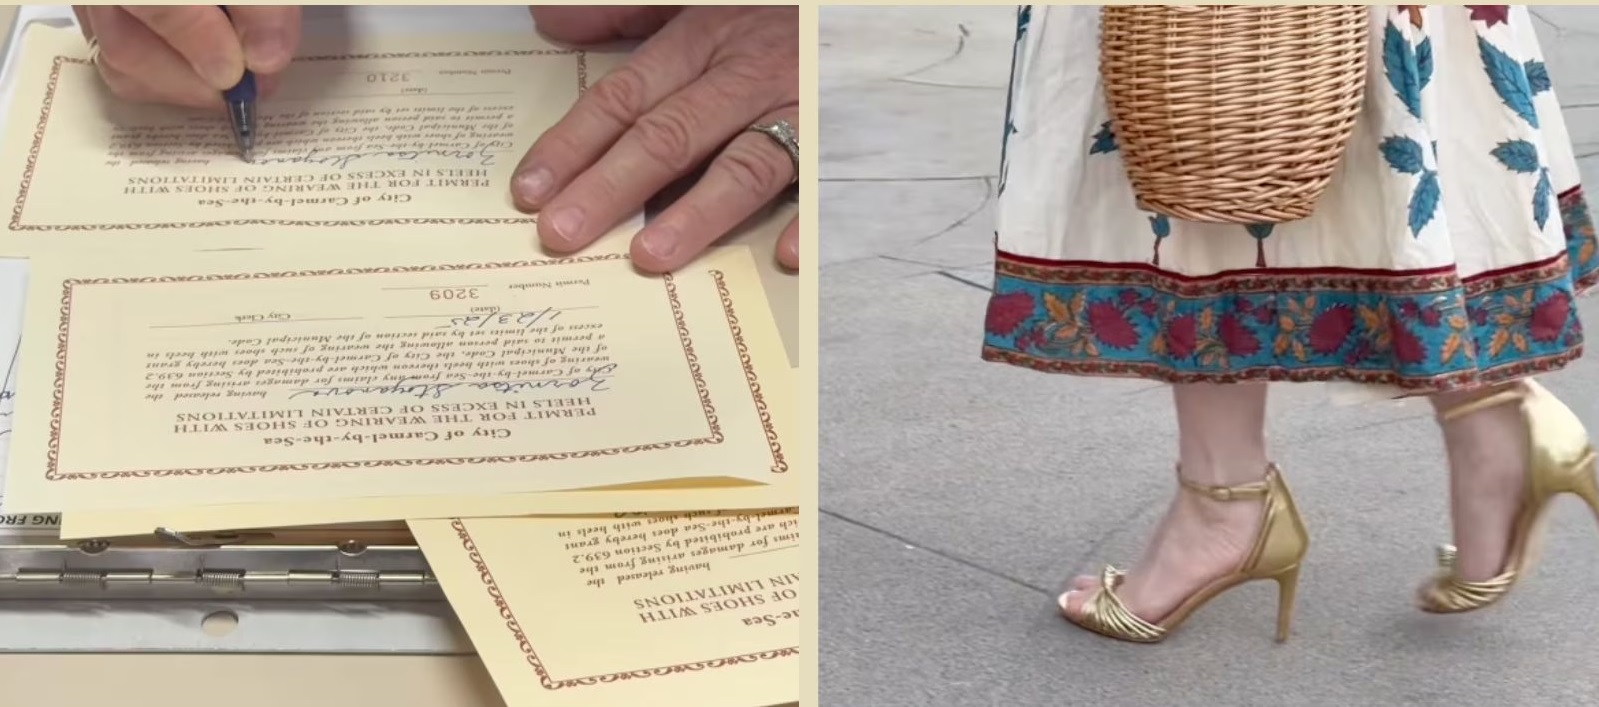 City of Carmel-by-the-Sea
PERMIT FOR THE WEARING OF SHOES WITH
HEELS IN EXCESS OF CERTAIN LIMITATIONS
Zornitsa Stoyano having released the
City of Carmel-by-the-Sea from any claims arising from the
wearing of shoes with heels thereon which are by Section 639.2
of the Municipal Code, the City of Carmel does hereby grant
a permit to said person allowing the wearing of shoes with heels in
excess of the limits set by said section of the
(date)
Permit Number 3210
City of Carmel-by-the-Sea
PERMIT FOR THE WEARING OF SHOES WITH
HEELS IN EXCESS OF CERTAIN LIMITATIONS
Zornitsa Stoyanova having released the
City of Carmel-by-the-Sea from any claims for damages arising from the
wearing of shoes with heels thereon which are prohibited by Section 639.2
of the Municipal Code, the City of Carmel-by-the-Sea does hereby grant
a permit to said person allowing the wearing of such shoes with heels in
excess of the limits set by said section of the Municipal Code.
1/23/25
(date) City Clerk
Permit Number 3209
he-Sea
OF SHOES WITH
IN LIMITATIONS
having released the
for damages arising from the
are prohibited by Section 639.2
Carmel-by-the-Sea does hereby grant
of such shoes with heels in
NG FRO